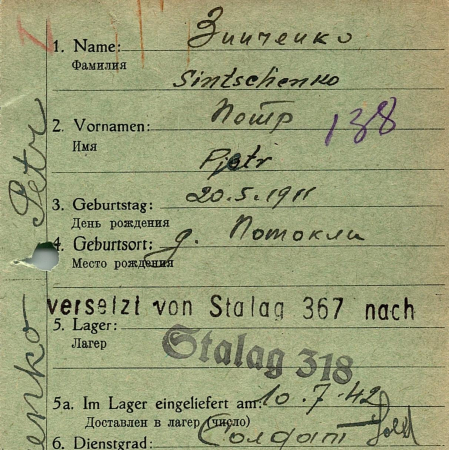 1. Name: Зинченко
Фамилия
Sintschenko
2. Vornamen: Петр
Имя
138
Pjotr
3. Geburtstag: 20.5.1911
День рождения
4. Geburtsort: д. Потокли
Место рождения
versetzt von Stalag 367 nach
5. Lager:
Лагер
Stalag 318
5a. Im Lager eingeliefert am: 10.7.42
Доставлен в лагер (число)
6. Dienstgrad: Солдат Sold
enko Petr